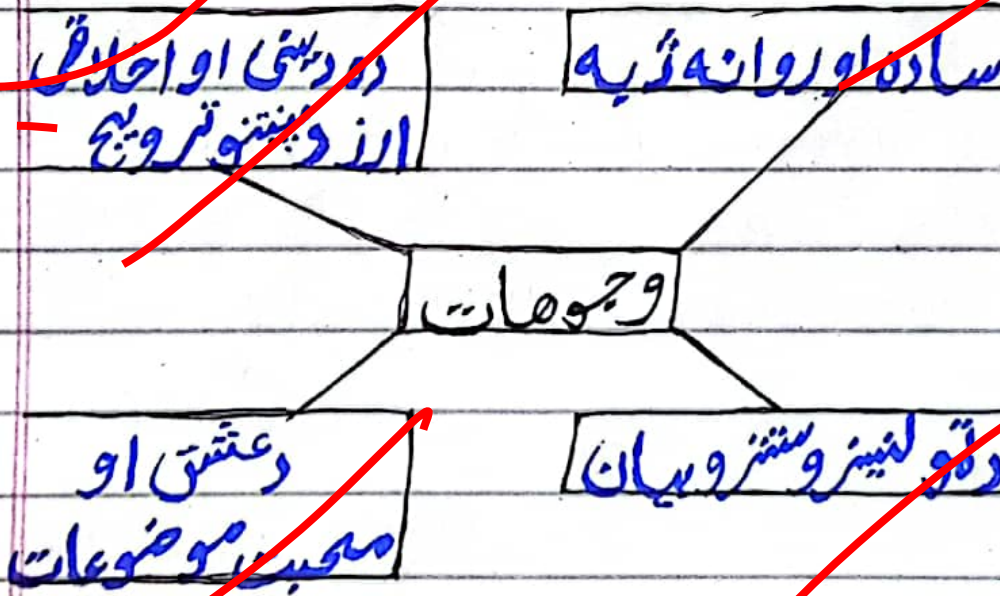 ساده او روانه ژبه
دیني او اخلاقي
ترویج
وجوهات
دټولنیزو بیان
د عشق او
محبت موضوعات